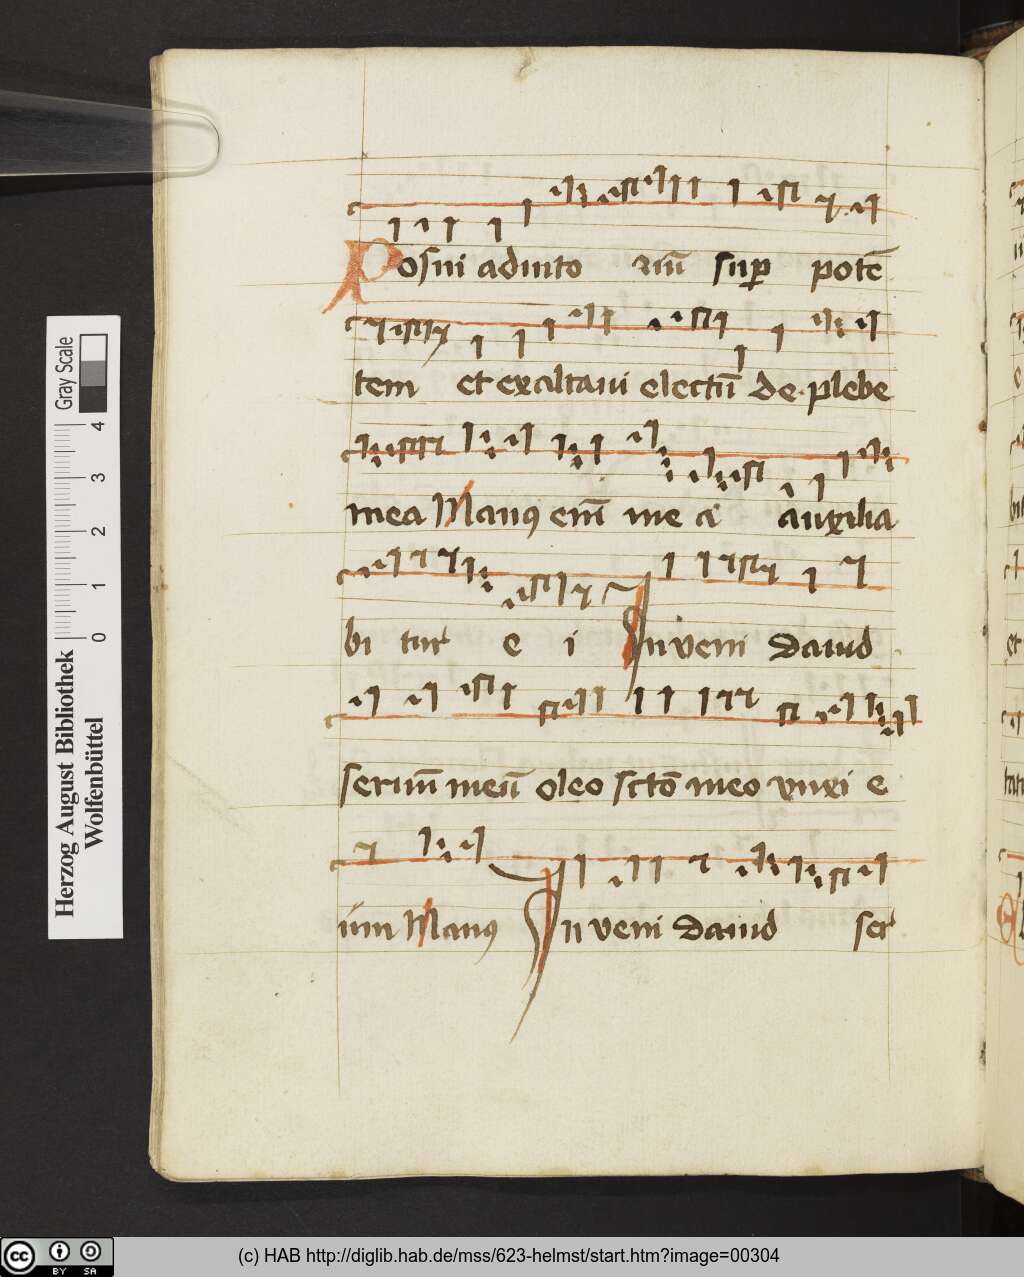 Posui adiuto riū sup potē
tem et exaltaui electū de plebe
mea Manus eni᷑ me a auxilia
bi tur e i Inveni Dauid
seruū meū oleo sctō meo vnxi e
um Manus Inveni Dauid ser
Gray Scale
0 1 2 3 4
Herzog August Bibliothek
Wolfenbüttel
cc BY SA
(c) HAB http://diglib.hab.de/mss/623-helmst/start.htm?image=00304